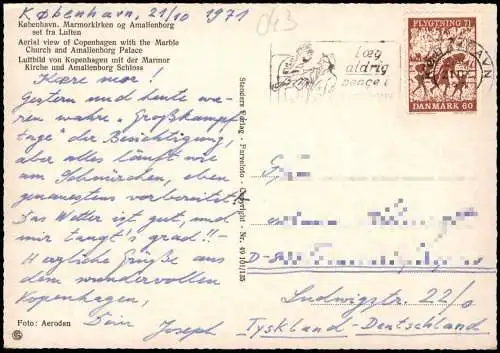 København, 21/10 1971
043
København. Marmorkirken og Amalienborg
set fra Luften
Aerial view of Copenhagen with the Marble
Church and Amalienborg Palace
Luftbild von Kopenhagen mit der Marmor
Kirche und Amalienborg Schloss
Kære mor!
Gestern und heute wa-
ren wahre "Großkampf-
tage" der Besichtigung,
aber alles läuft wie
am Schnürchen, eben
genauestens vorbereitet!
Das Wetter ist gut, und
mir taugt's grad!!-
Herzliche Grüße aus
dem wundervollen
Kopenhagen,
Dein Joseph
Foto: Aerodan
Stenders Forlag - Farvefoto - Copyright - Nr. 49 101/135
læg
aldrig
penge i
KØBENHAVN
FLYGTNING 71
DANMARK 60
D-
Ludwigstr. 22/0
Tyskland-Deutschland